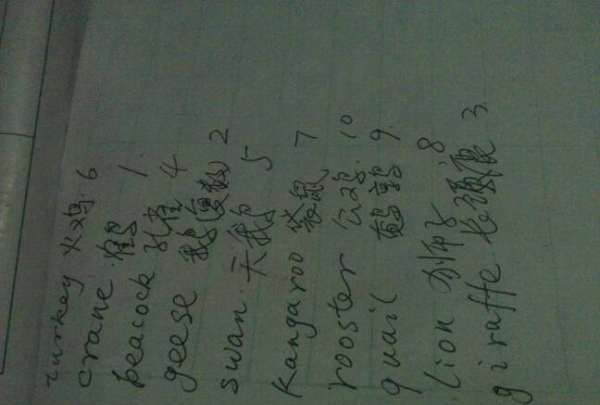 turkey 火鸡 6
crane 鹤 1
peacock 孔雀 4
geese 鹅复数 2
swan 天鹅 5
kangaroo 袋鼠 7
rooster 公鸡 10
quail 鹌鹑 9
lion 狮子 8
giraffe 长颈鹿 3